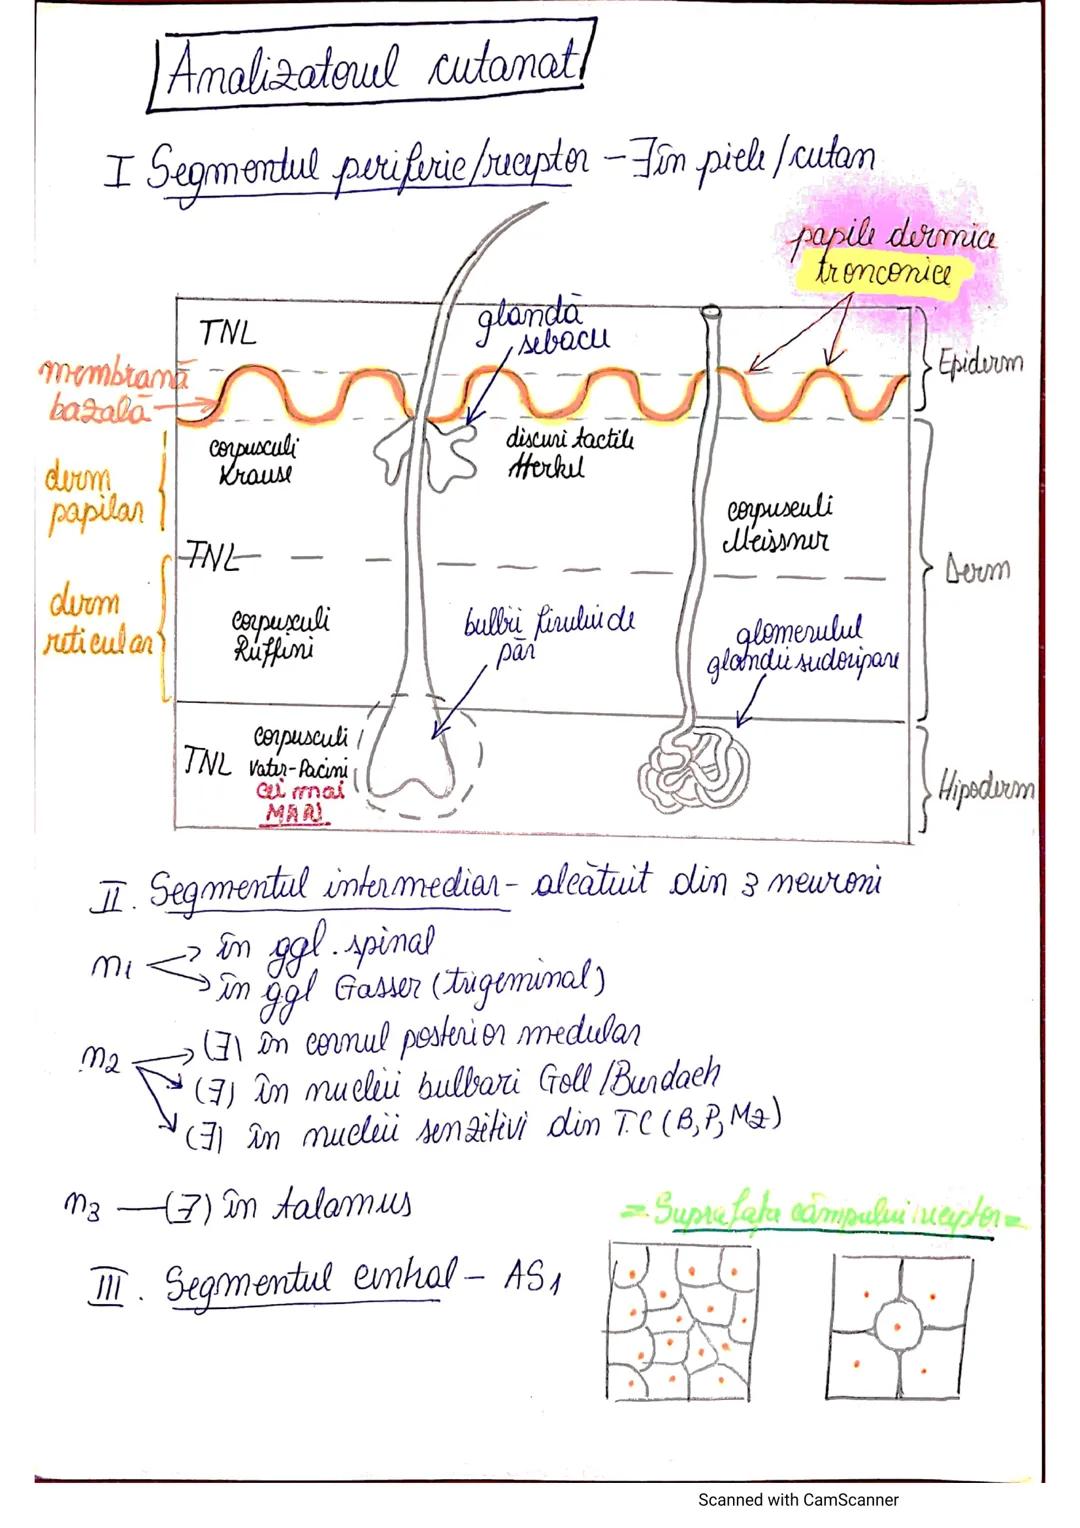 Analizatorul cutanat
I Segmentul periferic/receptor - ∃ în piele/cutan
papile dermice
tronconice
TNL
glandă
sebacee
membrană
bazală
Epiderm
corpusculi
Krause
discuri tactile
Merkel
derm
papilar
corpusculi
Meissner
TNL
Derm
derm
reticular
corpusculi
Ruffini
bulbii firului de
păr
glomerulul
glandei sudoripare
TNL
corpusculi
Vater-Pacini
cei mai
MARI
Hipoderm
II. Segmentul intermediar - alcătuit din 3 neuroni
n1
în ggl. spinal
în ggl Gasser (trigeminal)
n2
(∃) în cornul posterior medular
(∃) în nucleii bulbari Goll/Burdach
(∃) în nucleii senzitivi din T.C (B, P, Mz)
n3 — (∃) în talamus
= Suprafața câmpului receptor =
III. Segmentul central - AS1
Scanned with CamScanner